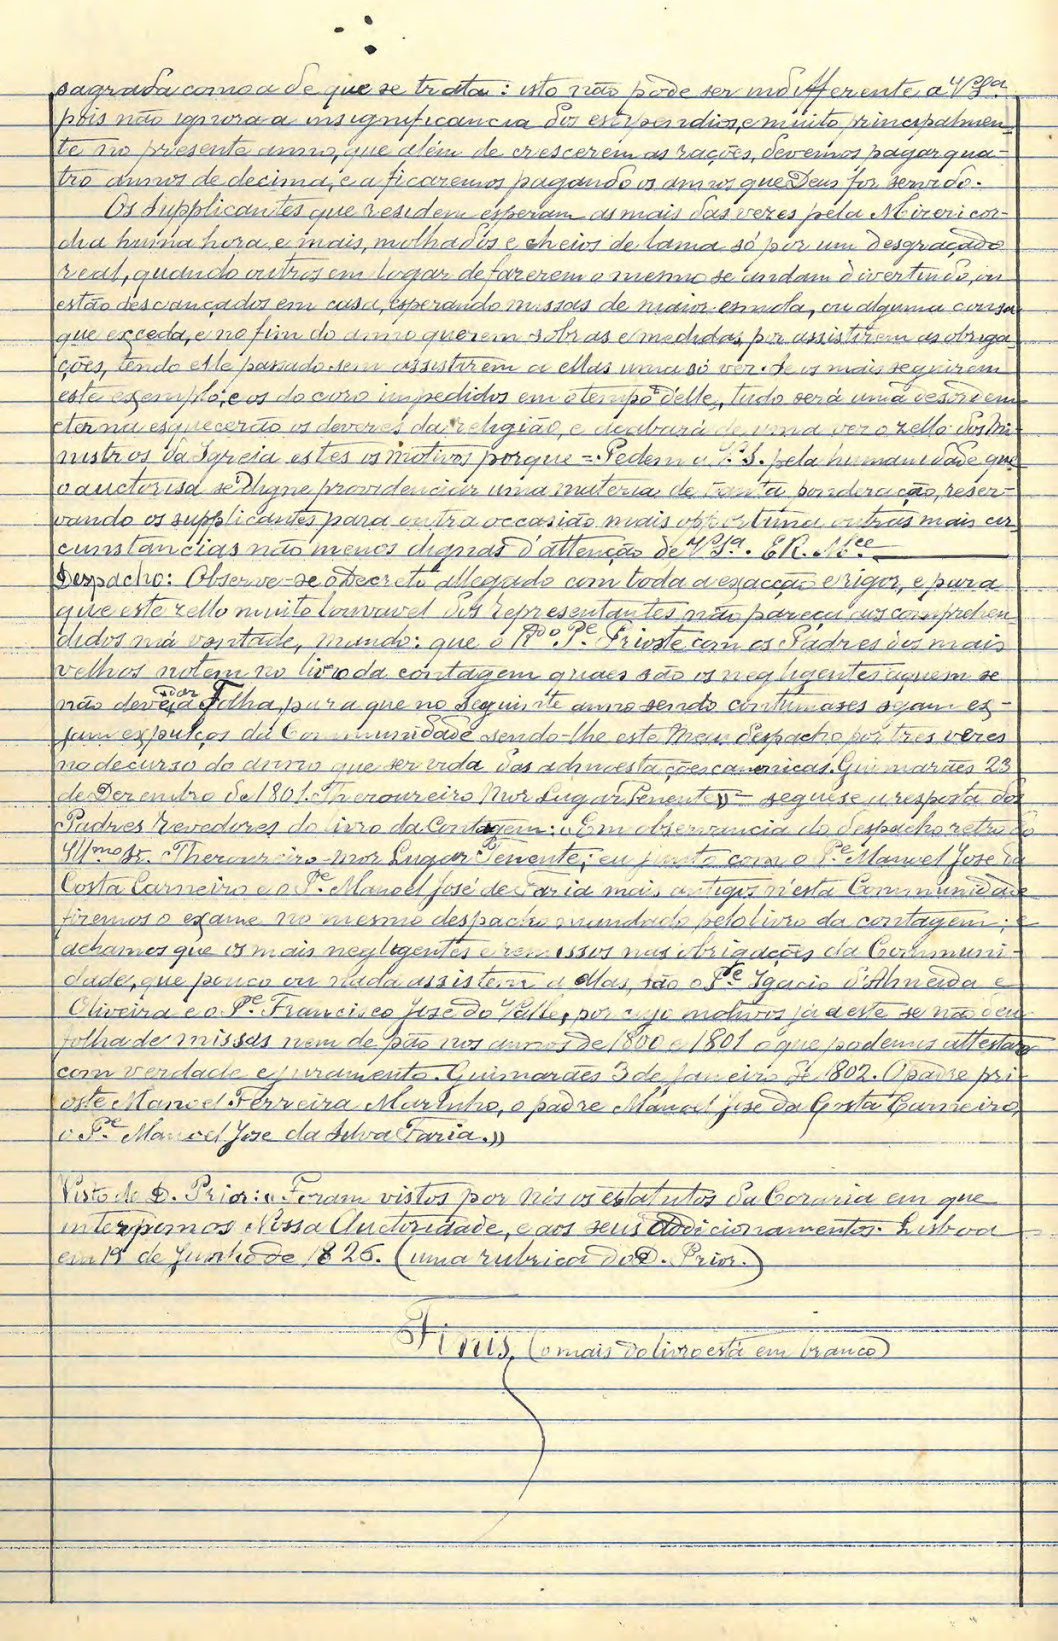 sagrada como a de que se trata: isto não póde ser indifferente a V. Sª.
pois não ignora a insignificancia dos estipendios, e muito principalmen-
te no presente anno, que além de crescerem as rações, devemos pagar qua-
tro annos de decima, e a ficaremos pagando os annos que Deus for servido.
Os supplicantes que residem esperam as mais das vezes pela Misericor-
dia huma hora, e mais, molhados e cheios de lama só por um desgraçado
real, quando outros em logar de fazerem o mesmo se andam divertindo, ou
estão descançados em casa, esperando missas de maior esmola, ou alguma cousa
que exceda, e no fim do anno querem sobras e medidas, pr assistirem as obriga-
ções, tendo elle passado sem assistirem a ellas uma só vez. Se os mais seguirem
este exemplo, e os do coro impedidos em o tempo d'elle, tudo será uma desordem
eterna esquecerão os deveres da religião, e acabará de uma vez o zello dos Mi-
nistros da Igreja estes os motivos porque = Pedem a V. S. pela humanidade que
o auctorisa se digne providenciar uma materia de tanta ponderação, reser-
vando os supplicantes para outra occasião mais opportuna outras mais cir-
cunstancias não menos dignas d'attenção de V. Sª. E R. Mce
Despacho: Observe-se o Decreto allegado com toda a exacção e rigor, e para
que este zello muito louvavel dos representantes não pareça aos comprehen-
didos má vontade, mando: que o Rdo. Pe. Prioste com os Padres dos mais
velhos notem no livro da contagem quaes são os negligentes a quem se
não deve dar a Folha, para que no seguinte anno sendo contumases sejam ex-
jam expulços da Communidade sendo-lhe este Meu despacho por tres vezes
no decurso do anno que servida das admoestações canonicas. Guimarães 23
de Dezembro de 1801. Thezoureiro Mor Lugar Tenente» = segue se a resposta dos
Padres Revedores do livro da Contagem: «Em observancia do despacho retro do
Illmo Sr. Thezoureiro-Mor Lugar Tenente, eu junto com o Pe. Manoel José da
Costa Carneiro e o Pe. Manoel José de Faria mais antigos n'esta Communidade
fizemos o exame no mesmo despacho mandado pelo livro da contagem; e
achamos que os mais negligentes e remissos nas obrigações da Communi-
dade, que pouco ou nada assistem a ellas, são o Pe. Igacio d'Almeida e
Oliveira e o Pe. Francisco José do Valle, por cujo motivos já a este se não deu
folha de missas nem de pão nos annos de 1800 e 1801 o que podemos attestar
com verdade e juramento. Guimarães 3 de janeiro de 1802. O padre pri-
oste Manoel Ferreira Marinho, o padre Manoel José da Costa Carneiro,
o Pe. Manoel José da Silva Faria.»
Visto do D. Prior: «Foram vistos por Nós os estatutos da Coraria em que
interpomos Nossa Auctoridade, e aos seus Addicionamentos. Lisboa
em 19 de Junho de 1826. (uma rubrica do D. Prior.)
Finis, (o mais do livro está em branco)